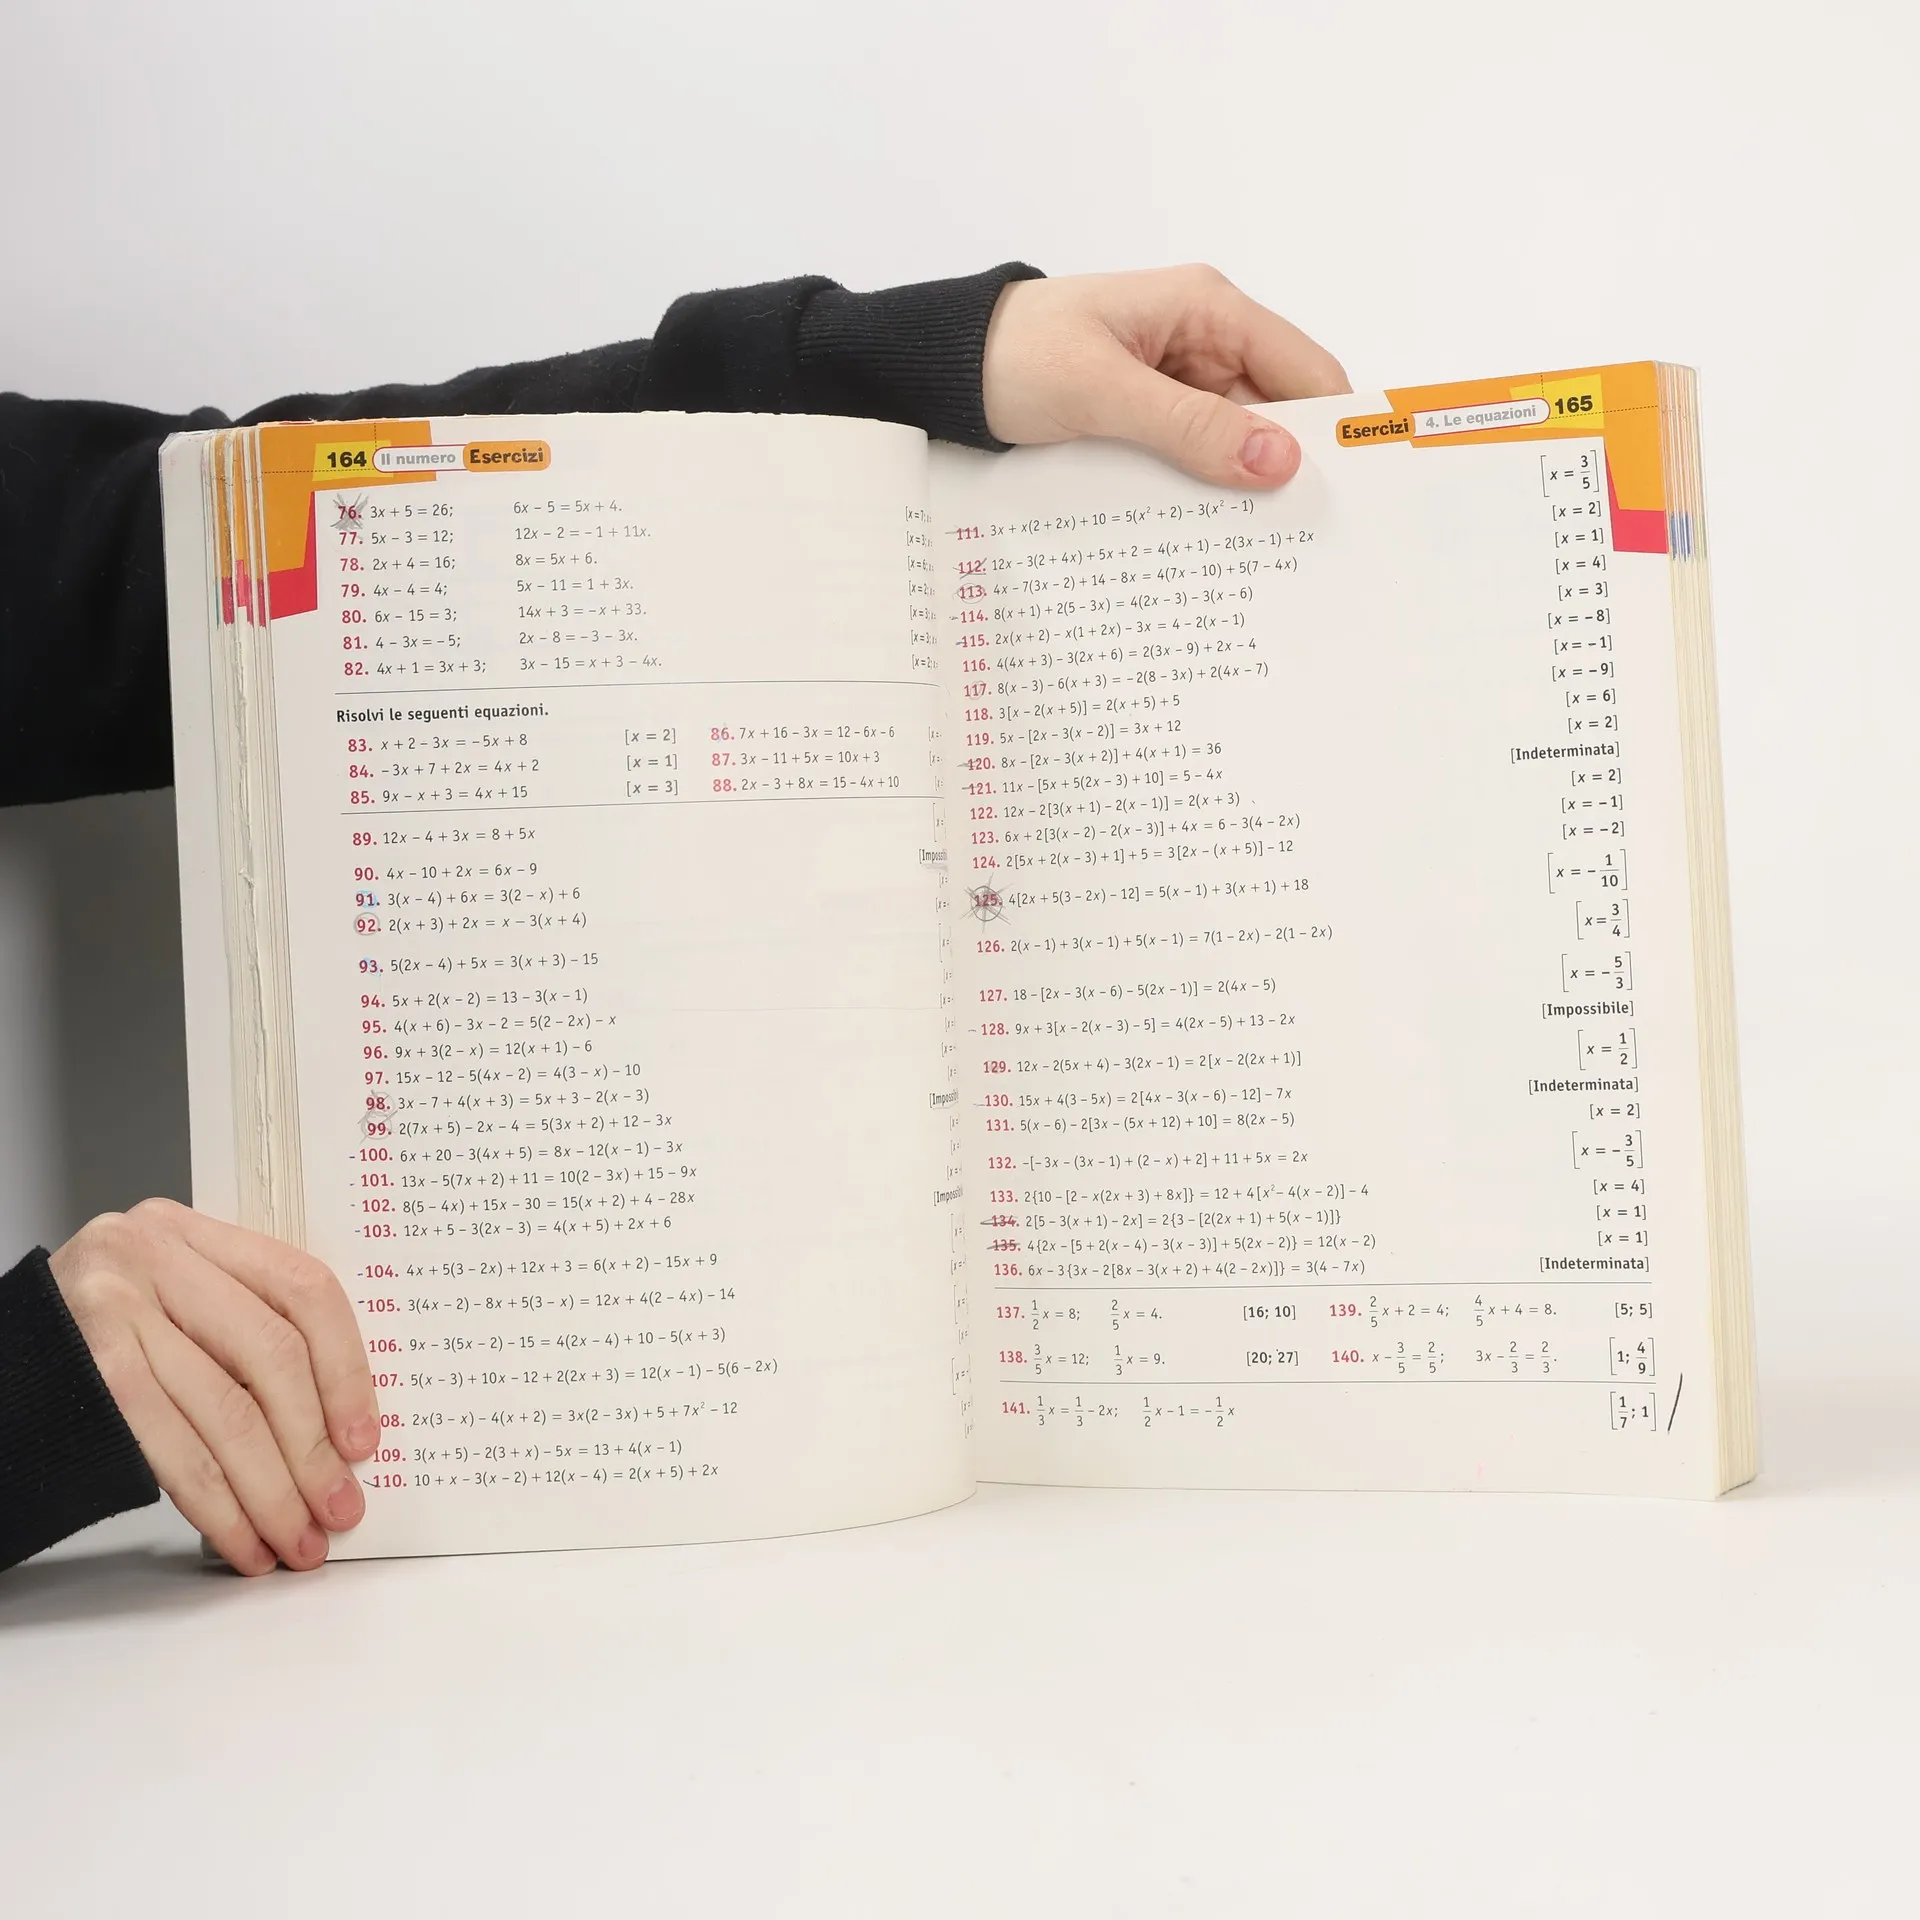 164 Il numero Esercizi
76. 3x + 5 = 26; 6x − 5 = 5x + 4.
77. 5x − 3 = 12; 12x − 2 = −1 + 11x.
78. 2x + 4 = 16; 8x = 5x + 6.
79. 4x − 4 = 4; 5x − 11 = 1 + 3x.
80. 6x − 15 = 3; 14x + 3 = −x + 33.
81. 4 − 3x = −5; 2x − 8 = −3 − 3x.
82. 4x + 1 = 3x + 3; 3x − 15 = x + 3 − 4x.
Risolvi le seguenti equazioni.
83. x + 2 − 3x = −5x + 8 [x = 2] 86. 7x + 16 − 3x = 12 − 6x − 6
84. −3x + 7 + 2x = 4x + 2 [x = 1] 87. 3x − 11 + 5x = 10x + 3
85. 9x − x + 3 = 4x + 15 [x = 3] 88. 2x − 3 + 8x = 15 − 4x + 10
89. 12x − 4 + 3x = 8 + 5x
90. 4x − 10 + 2x = 6x − 9
91. 3(x − 4) + 6x = 3(2 − x) + 6
92. 2(x + 3) + 2x = x − 3(x + 4)
93. 5(2x − 4) + 5x = 3(x + 3) − 15
94. 5x + 2(x − 2) = 13 − 3(x − 1)
95. 4(x + 6) − 3x − 2 = 5(2 − 2x) − x
96. 9x + 3(2 − x) = 12(x + 1) − 6
97. 15x − 12 − 5(4x − 2) = 4(3 − x) − 10
98. 3x − 7 + 4(x + 3) = 5x + 3 − 2(x − 3)
99. 2(7x + 5) − 2x − 4 = 5(3x + 2) + 12 − 3x
100. 6x + 20 − 3(4x + 5) = 8x − 12(x − 1) − 3x
101. 13x − 5(7x + 2) + 11 = 10(2 − 3x) + 15 − 9x
102. 8(5 − 4x) + 15x − 30 = 15(x + 2) + 4 − 28x
103. 12x + 5 − 3(2x − 3) = 4(x + 5) + 2x + 6
104. 4x + 5(3 − 2x) + 12x + 3 = 6(x + 2) − 15x + 9
105. 3(4x − 2) − 8x + 5(3 − x) = 12x + 4(2 − 4x) − 14
106. 9x − 3(5x − 2) − 15 = 4(2x − 4) + 10 − 5(x + 3)
107. 5(x − 3) + 10x − 12 + 2(2x + 3) = 12(x − 1) − 5(6 − 2x)
08. 2x(3 − x) − 4(x + 2) = 3x(2 − 3x) + 5 + 7x² − 12
109. 3(x + 5) − 2(3 + x) − 5x = 13 + 4(x − 1)
110. 10 + x − 3(x − 2) + 12(x − 4) = 2(x + 5) + 2x
Esercizi 4. Le equazioni 165
111. 3x + x(2 + 2x) + 10 = 5(x² + 2) − 3(x² − 1) [x = 3/5]
112. 12x − 3(2 + 4x) + 5x + 2 = 4(x + 1) − 2(3x − 1) + 2x [x = 2]
113. 4x − 7(3x − 2) + 14 − 8x = 4(7x − 10) + 5(7 − 4x) [x = 1]
114. 8(x + 1) + 2(5 − 3x) = 4(2x − 3) − 3(x − 6) [x = 4]
115. 2x(x + 2) − x(1 + 2x) − 3x = 4 − 2(x − 1) [x = 3]
116. 4(4x + 3) − 3(2x + 6) = 2(3x − 9) + 2x − 4 [x = −8]
117. 8(x − 3) − 6(x + 3) = −2(8 − 3x) + 2(4x − 7) [x = −1]
118. 3[x − 2(x + 5)] = 2(x + 5) + 5 [x = −9]
119. 5x − [2x − 3(x − 2)] = 3x + 12 [x = 6]
120. 8x − [2x − 3(x + 2)] + 4(x + 1) = 36 [x = 2]
121. 11x − [5x + 5(2x − 3) + 10] = 5 − 4x [Indeterminata]
122. 12x − 2[3(x + 1) − 2(x − 1)] = 2(x + 3) [x = 2]
123. 6x + 2[3(x − 2) − 2(x − 3)] + 4x = 6 − 3(4 − 2x) [x = −1]
124. 2[5x + 2(x − 3) + 1] + 5 = 3[2x − (x + 5)] − 12 [x = −2]
125. 4[2x + 5(3 − 2x) − 12] = 5(x − 1) + 3(x + 1) + 18 [x = −1/10]
126. 2(x − 1) + 3(x − 1) + 5(x − 1) = 7(1 − 2x) − 2(1 − 2x) [x = 3/4]
127. 18 − [2x − 3(x − 6) − 5(2x − 1)] = 2(4x − 5) [x = −5/3]
128. 9x + 3[x − 2(x − 3) − 5] = 4(2x − 5) + 13 − 2x [Impossibile]
129. 12x − 2(5x + 4) − 3(2x − 1) = 2[x − 2(2x + 1)] [x = 1/2]
130. 15x + 4(3 − 5x) = 2[4x − 3(x − 6) − 12] − 7x [Indeterminata]
131. 5(x − 6) − 2[3x − (5x + 12) + 10] = 8(2x − 5) [x = 2]
132. −[−3x − (3x − 1) + (2 − x) + 2] + 11 + 5x = 2x [x = −3/5]
133. 2{10 − [2 − x(2x + 3) + 8x]} = 12 + 4[x² − 4(x − 2)] − 4 [x = 4]
134. 2[5 − 3(x + 1) − 2x] = 2{3 − [2(2x + 1) + 5(x − 1)]} [x = 1]
135. 4{2x − [5 + 2(x − 4) − 3(x − 3)] + 5(2x − 2)} = 12(x − 2) [x = 1]
136. 6x − 3{3x − 2[8x − 3(x + 2) + 4(2 − 2x)]} = 3(4 − 7x) [Indeterminata]
137. 1/2 x = 8; 2/5 x = 4. [16; 10] 139. 2/5 x + 2 = 4; 4/5 x + 4 = 8. [5; 5]
138. 3/5 x = 12; 1/3 x = 9. [20; 27] 140. x − 3/5 = 2/5; 3x − 2/3 = 2/3. [1; 4/9]
141. 1/3 x = 1/3 − 2x; 1/2 x − 1 = −1/2 x [1/7; 1]